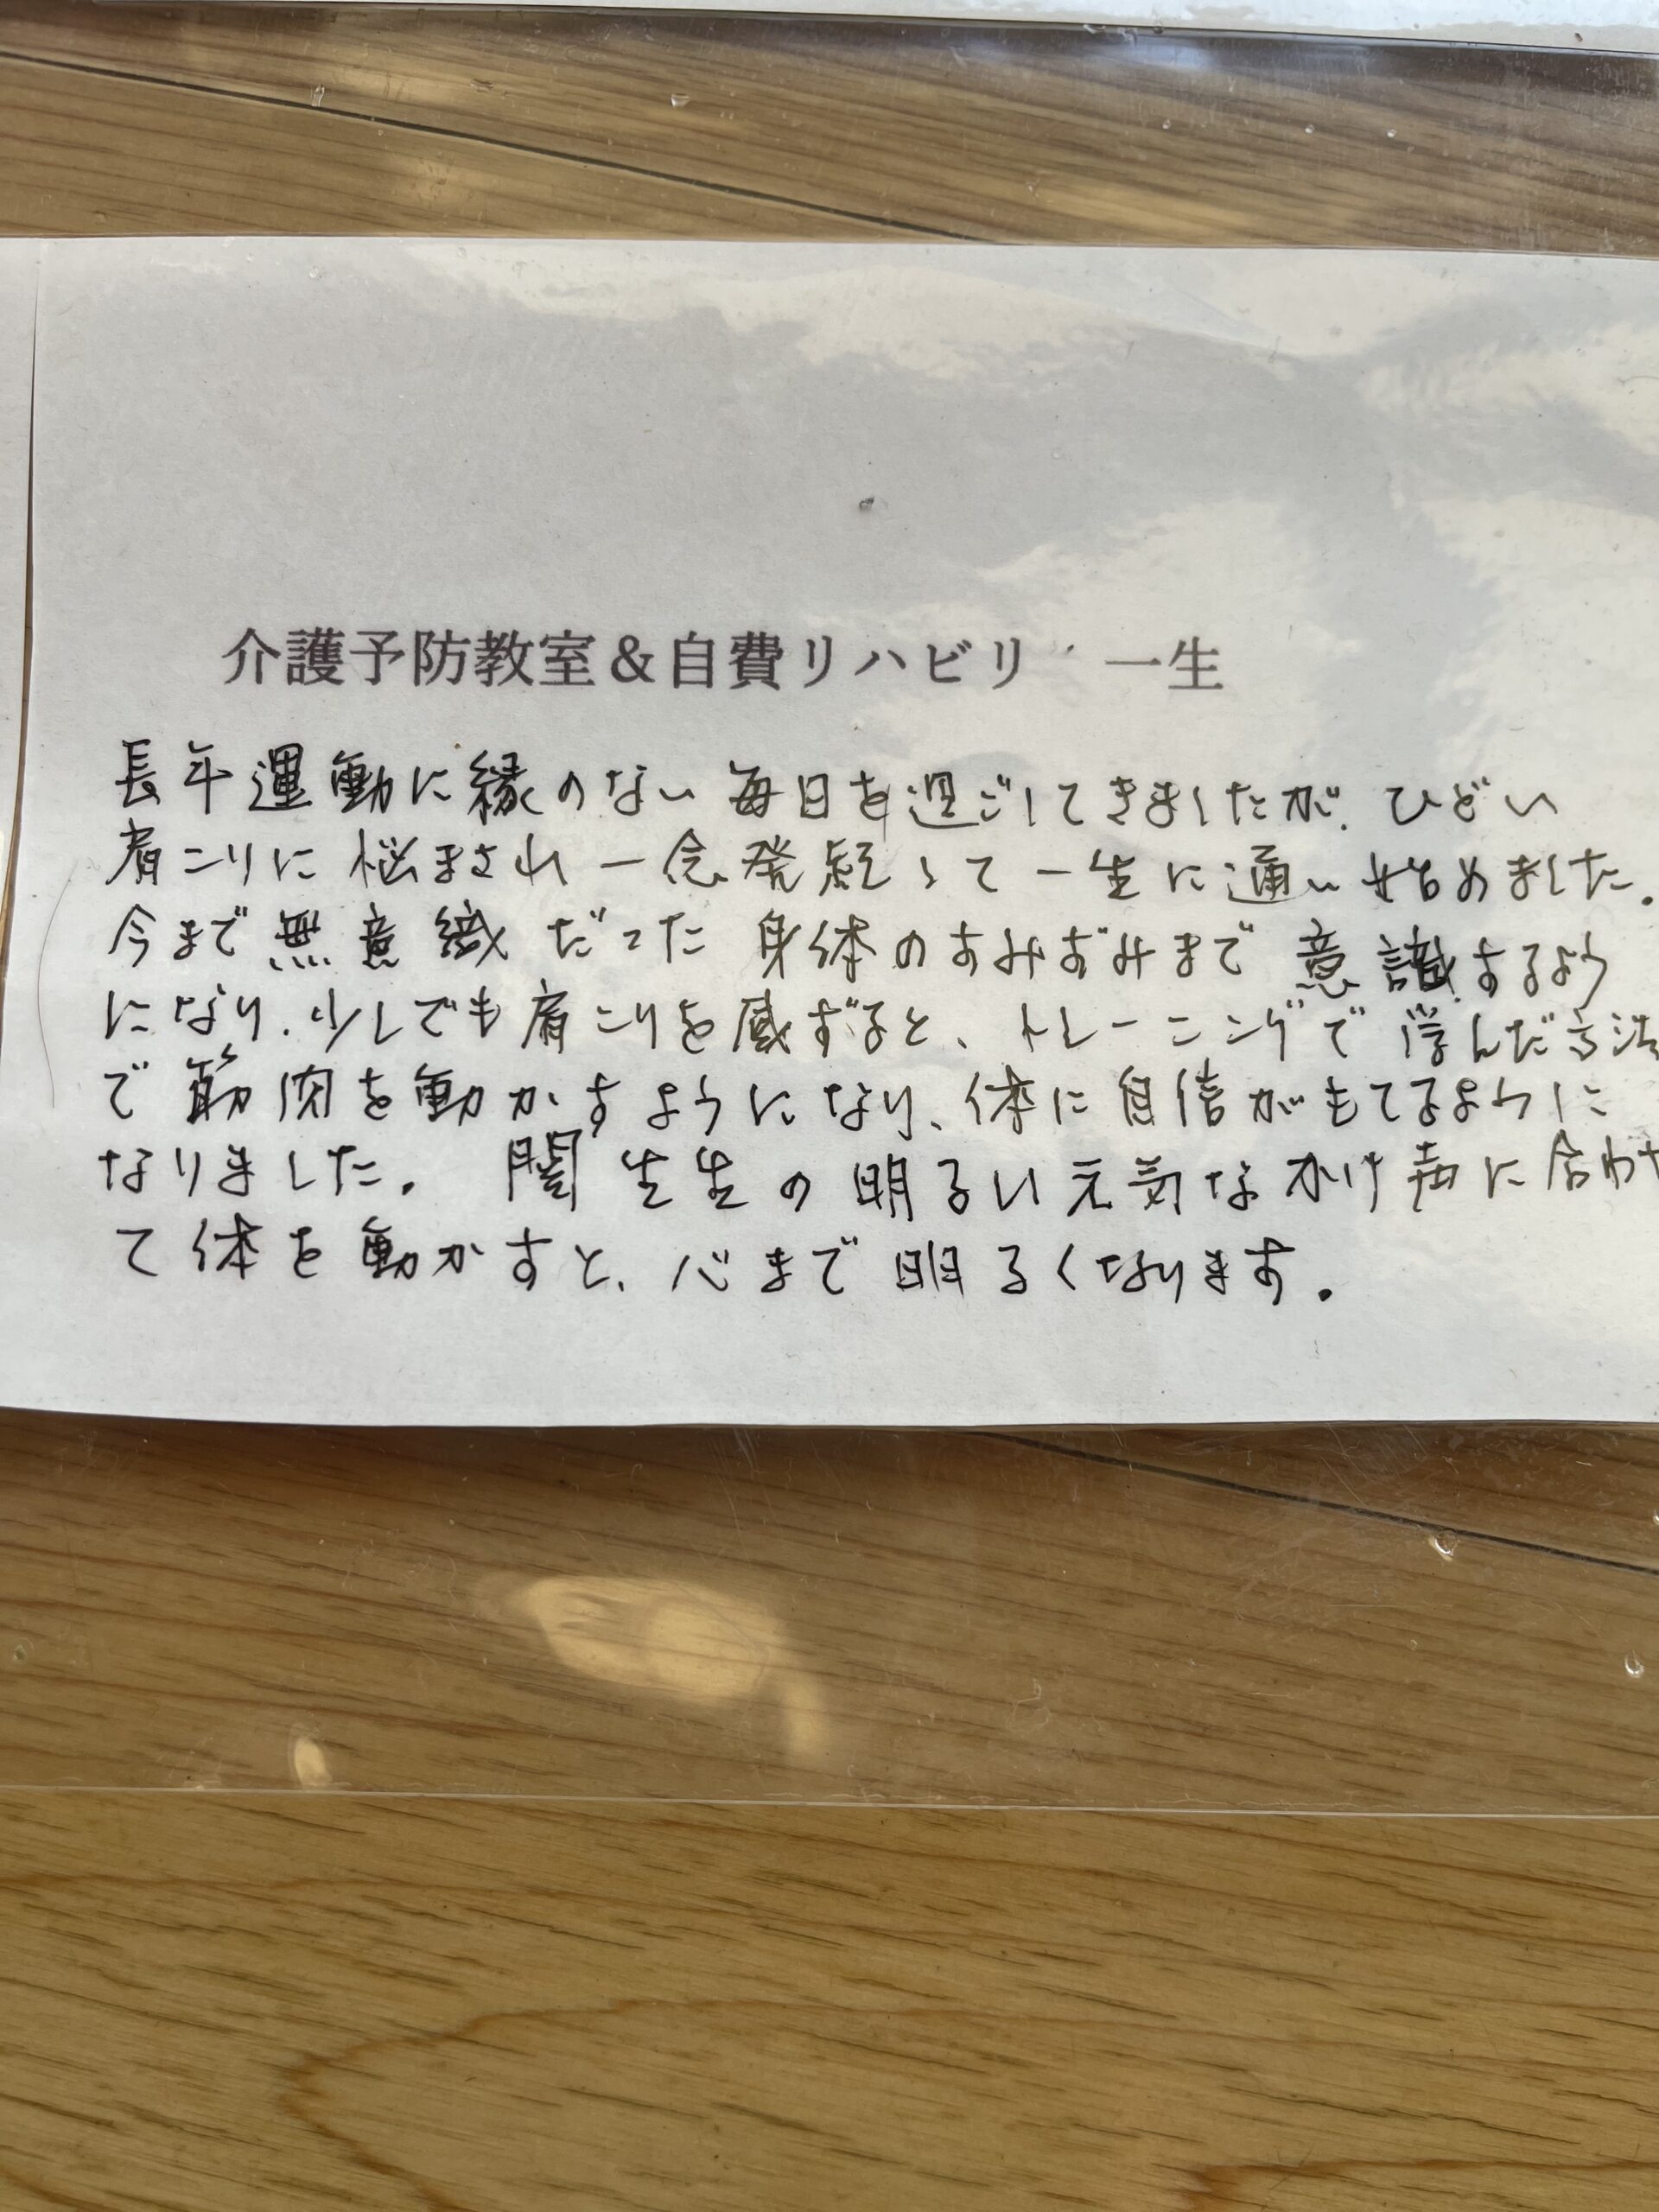 介護予防教室＆自費リハビリ 一生
長年運動に縁のない毎日を過ごしてきましたが、ひどい
肩こりに悩まされ一念発起して一生に通い始めました。
今まで無意識だった身体のすみずみまで意識するよう
になり、少しでも肩こりを感ずると、トレーニングで学んだ方法
で筋肉を動かすようになり、体に自信がもてるように
なりました。 生生の明るい元気なかけ声に合わせ
て体を動かすと、心まで明るくなります。